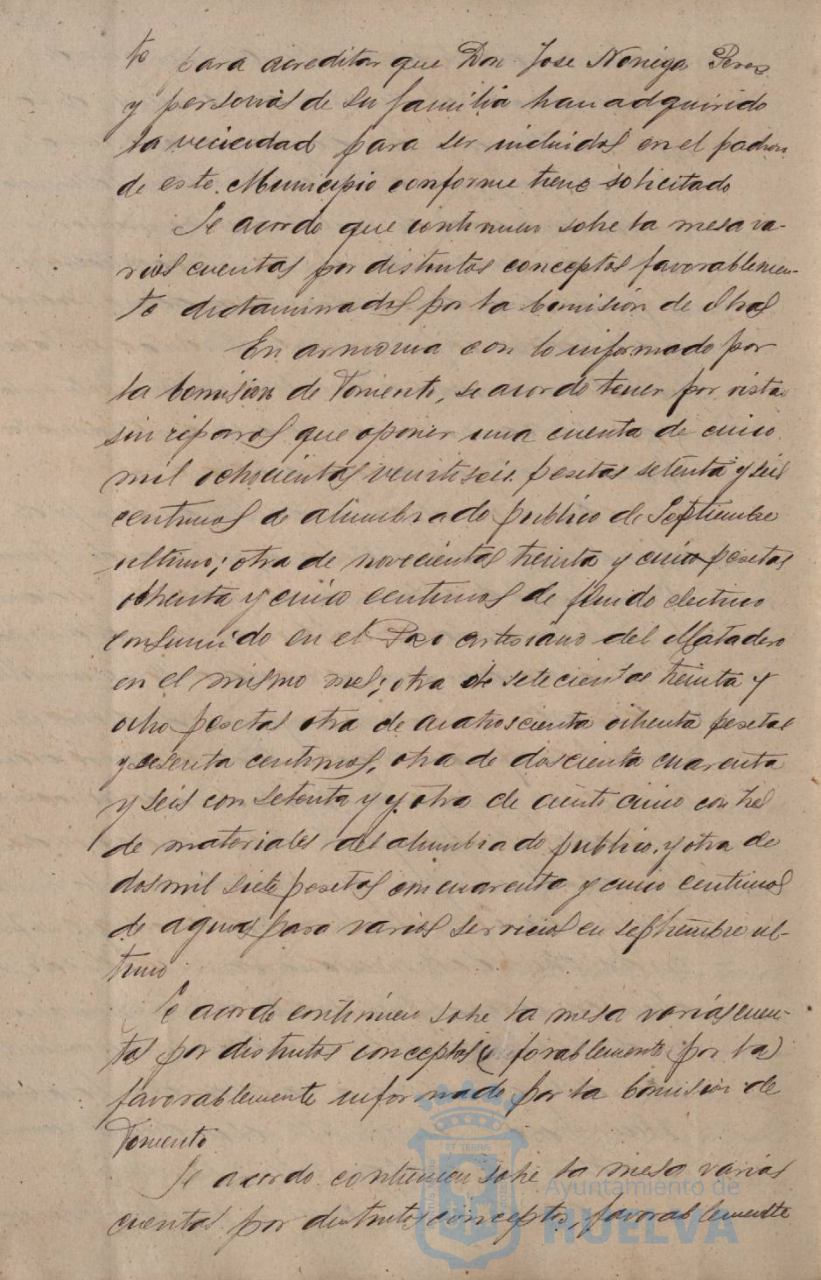 to para acreditar que Don Jose Noriega Perez
y personas de su familia han adquirido
la vecindad para ser incluidos en el padron
de este Municipio conforme tiene solicitado
Se acordo que continuen sobre la mesa va-
rias cuentas por distintos conceptos favorablemen-
te dictaminadas por la Comisión de
En armonia con lo informado por
la Comision de Fomento, se acordo tener por vista
sin reparos que oponer una cuenta de cinco
mil ochocientas veintiseis pesetas setenta y seis
centimos de alumbrado publico de Septiembre
ultimo; otra de novecientas treinta y cinco pesetas
ochenta y cinco centimos de fluido electrico
consumido en el Pozo artesiano del Matadero
en el mismo mes; otra de setecientas treinta y
ocho pesetas otra de cuatroscienta ochenta pesetas
y sesenta centimos, otra de doscienta cuarenta
y seis con setenta y y otra de ciento cinco con tres
de materiales del alumbrado publico, y otra de
dos mil siete pesetas cincuarenta y cinco centimos
de aguas para varios servicios en septiembre ul-
timo
Se acordo continuen sobre la mesa varias cuen-
tas por distintos conceptos forablemente por la
favorablemente informada por la Comision de
Fomento
Se acordo continuen sobre la mesa varias
cuentas por distintos conceptos, favorablemente
Ayuntamiento de
HUELVA